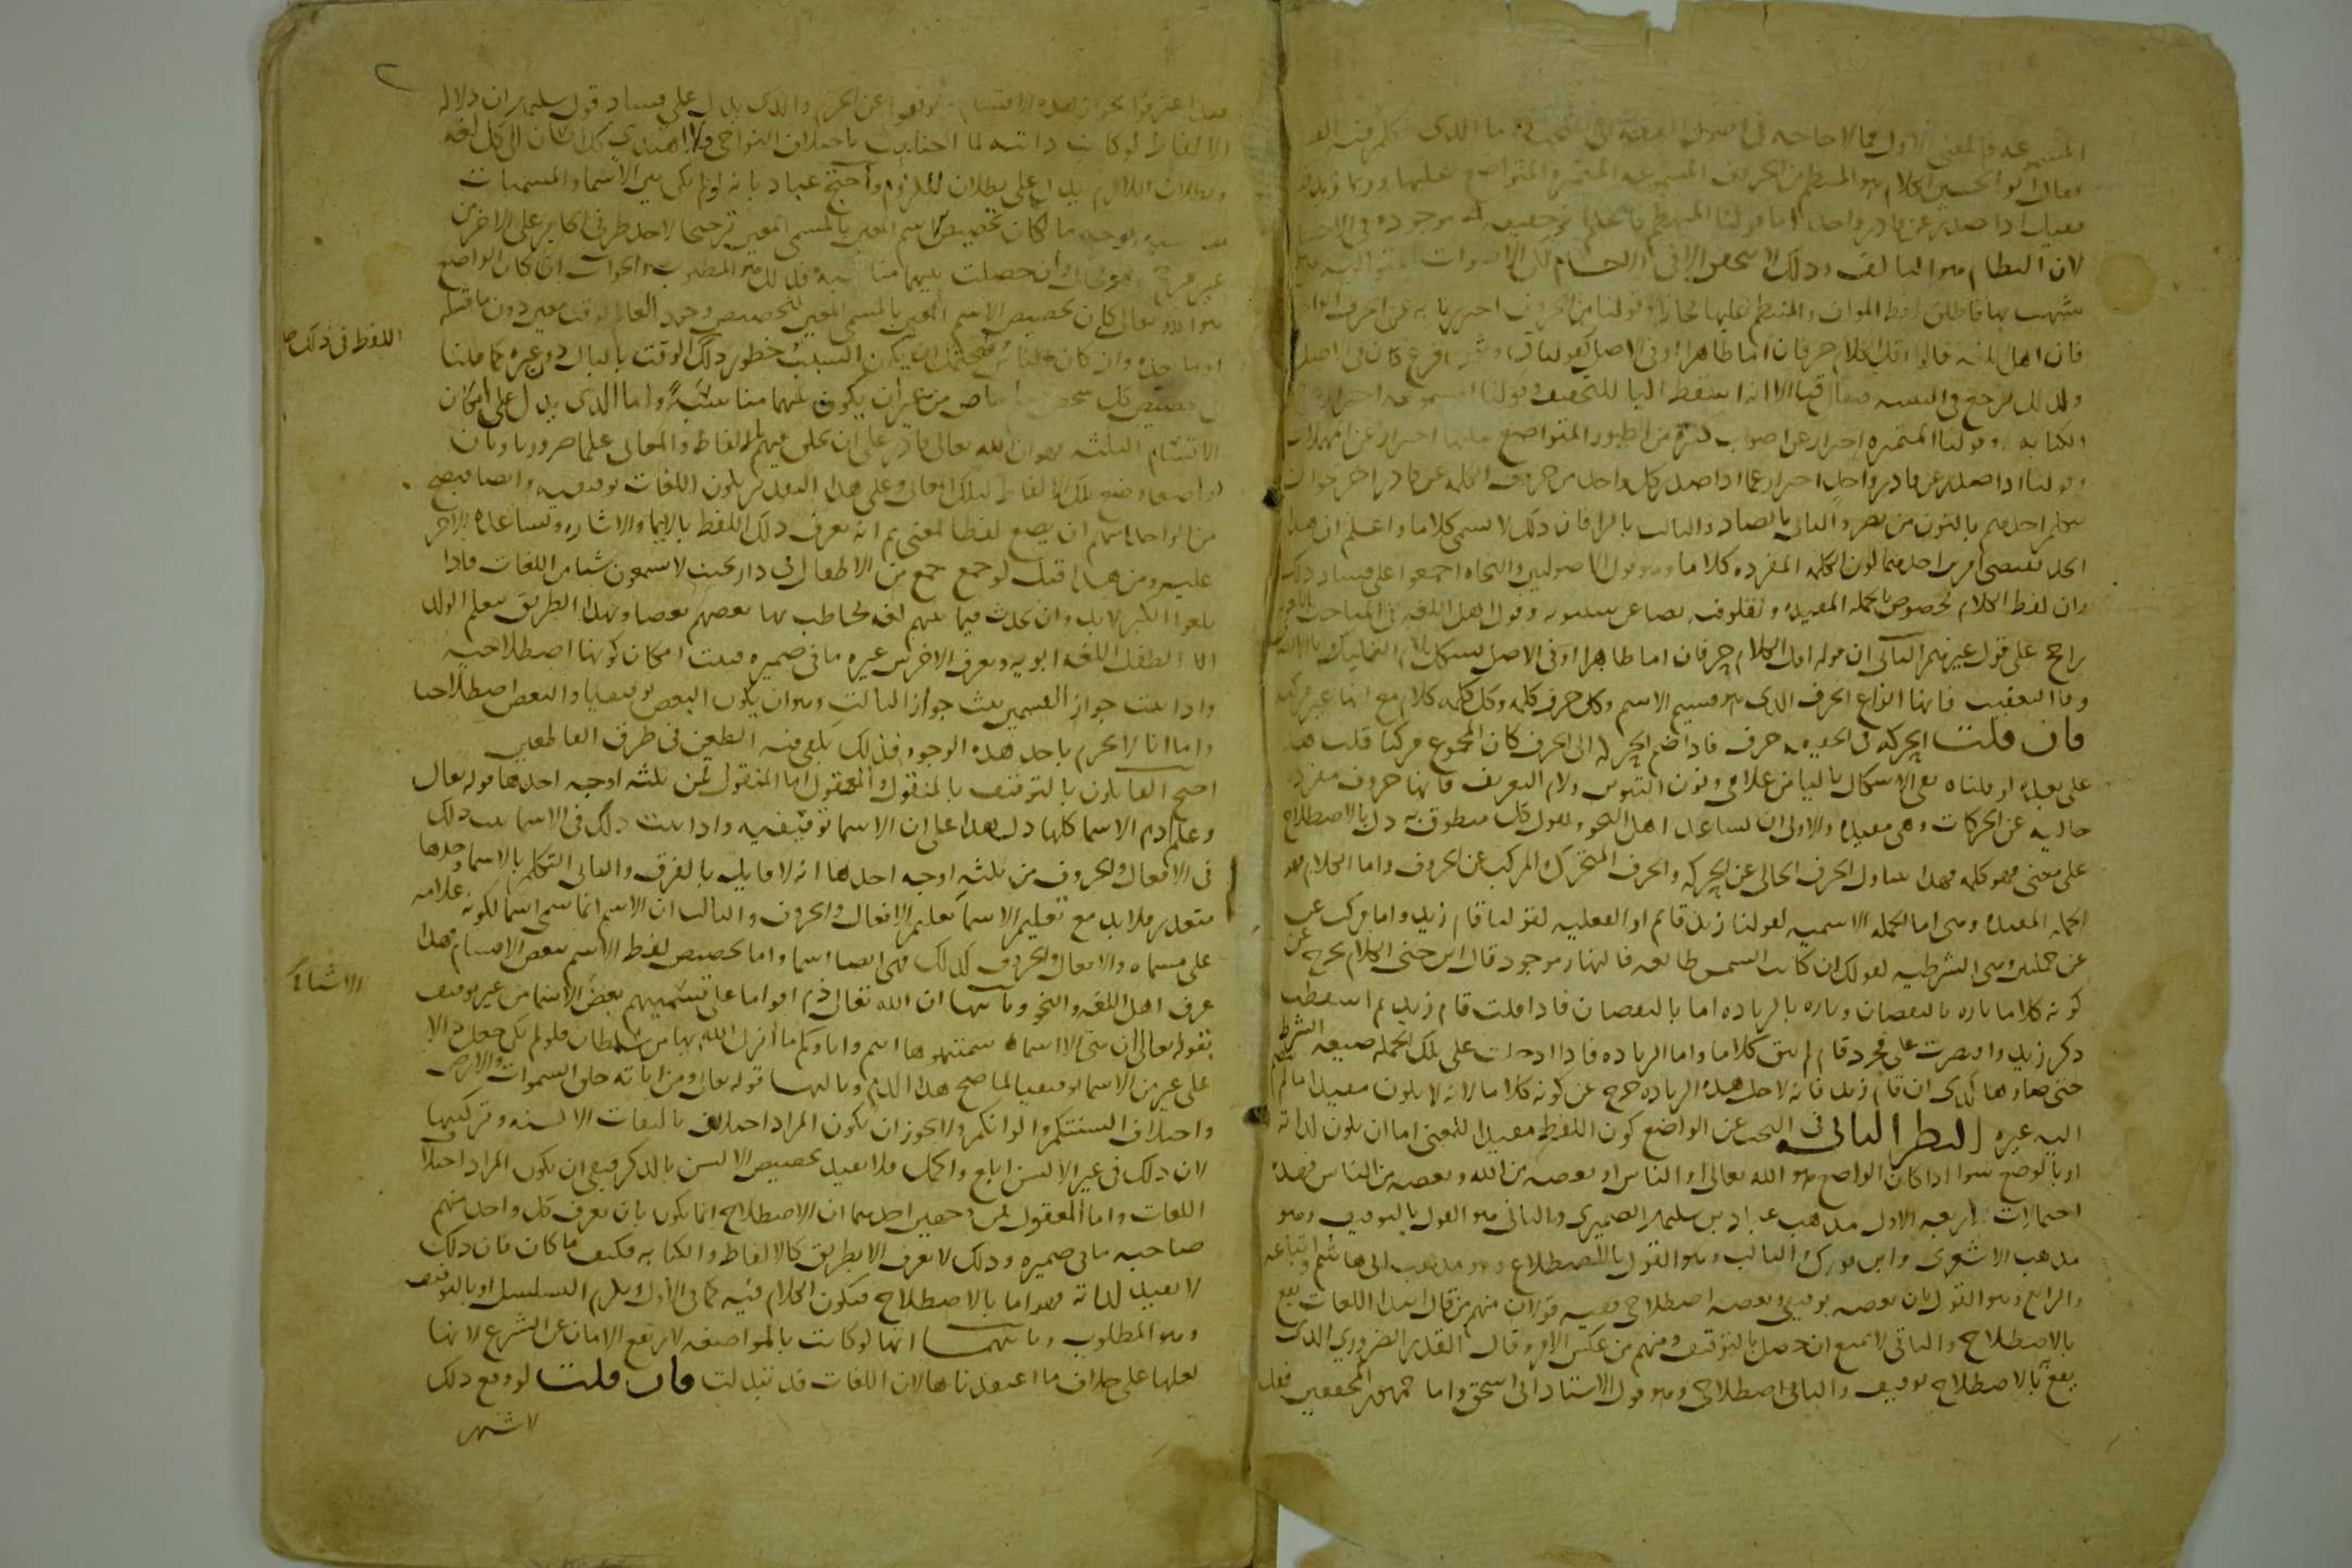 المسموعة فالمعنى الاول مما لا حاجة في اصول الفقه الى البحث عنه انما الذي نتكلم فيه
فقال ابو الحسين الكلام هو المنتظم من الحروف المسموعة المتميزة المتواضع عليها وربما زيد
فقيل اذا صدر عن قادر واحد اما قولنا المنتظم فاعلم انه حقيقة
لان النظام هو التاليف وذلك لا يتحقق الا في الاجسام لكن الاصوات المتوالية
شبهت بها فاطلق لفظ المولف والمنتظم عليها مجازا وقولنا من الحروف احترزنا به عن الحرف الواحد
فان اهل اللغة قالوا اقل الكلام حرفان اما ظاهرا او في الاصل كقولنا ق ش ع فانه كان في الاصل
ولذلك يرجع في التثنية فيقال قيا الا انه اسقط اليا للتخفيف وقولنا المسموعة احتراز عن
الكتابة وقولنا المتميزة احتراز عن اصوات كثيرة من الطيور المتواضع عليها احتراز عن المهملات
وقولنا اذا صدر عن قادر واحد احتراز عما اذا صدر كل واحد من حروف الكلمة عن قادر اخر نحو ان
يتكلم احدهم بالنون من نصر والثاني بالصاد والثالث بالرا فان ذلك لا يسمى كلاما واعلم ان هذا
الحد يقتضي امرين احدهما كون الكلمة المفردة كلاما وهو قول الاصوليين والنحاة اجمعوا على فساد ذلك
وان لفظ الكلام مخصوص بالجملة المفيدة ونقلوا فيه نصا عن سيبويه وقول اهل اللغة في المباحث اللغوية
راجح على قول غيرهم الثاني ان قوله اقل الكلام حرفان اما ظاهرا او في الاصل يشكل بلام التمليك
وفا التعقيب فانها انواع الحرف الذي هو قسيم الاسم وكل حرف كلمة وكل كلمة كلام مع انها غير مركبة
فان قلت الحركة في الحقيقة حرف فاذا ضم الحركة الى الحرف كان المجموع مركبا قلت هذا
على بعده لو قلناه بقي الاشكال باليا من غلامي ونون التنوين ولام التعريف فانها حروف مفردة
خالية عن الحركات وهي مفيدة والاولى ان نساعد اهل النحو ونقول كل منطوق به دل بالاصطلاح
على معنى فهو كلمة فهذا يتناول الحرف الخالي عن الحركة والحرف المتحرك والمركب عن الحروف واما الكلام فهو
الجملة المفيدة وهي اما الجملة الاسمية كقولنا زيد قائم او الفعلية كقولنا قام زيد واما مركب عن
عن جملتين وهي الشرطية كقولك ان كانت الشمس طالعة فالنهار موجود قال ابن جني الكلام يخرج عن
كونه كلاما تارة بالنقصان وتارة بالزيادة اما بالنقصان فاذا قلت قام زيد ثم اسقطت
ذكر زيد واقتصرت على مجرد قام لم يبق كلاما واما الزيادة فاذا ادخلت على تلك الجملة صيغة الشرط
حتى صار هكذى ان قام زيد فانه لاجل هذه الزيادة خرج عن كونه كلاما لانه لا يكون مفيدا ما لم يضم
اليه غيره النظر الثاني في البحث عن الواضع كون اللفظ مفيدا للمعنى اما ان يكون لذاته
او بالوضع سوا اذا كان الواضع هو الله تعالى او الناس او بعضه من الله وبعضه من الناس فهذه
احتمالات اربعة الاول مذهب عباد بن سليمان الصميري والثاني هو القول بالتوقيف وهو
مذهب الاشعري وابن فورك والثالث وهو القول بالاصطلاح وهو مذهب ابي هاشم واتباعه
والرابع وهو القول بان بعضه توقيفي وبعضه اصطلاحي ففيه قولان منهم من قال ابتدا اللغات يقع
بالاصطلاح والباقي لا يمتنع ان حصل بالتوقيف ومنهم من عكس الامر وقال القدر الضروري الذي
يقع به الاصطلاح توقيف والباقي اصطلاحي وهو قول الاستاذ ابي اسحق واما جمهور المحققين فقد
فقد اعترفوا بجواز هذه الاقسام وتوقفوا عن الجزم والذي يدل على فساد قول سليمان ان دلالة
الالفاظ لو كانت ذاتية لما اختلفت باختلاف النواحي ولا اهتدى كل انسان الى كل لغة
وبطلان اللازم يدل على بطلان الملزوم واحتج عباد بانه لو لم يكن بين الاسما والمسميات
مناسبة بوجه ما لكان تخصيص الاسم المعين بالمسمى المعين ترجيحا لاحد طرفي الجائز على الاخر من
غير مرجح وهو محال وان حصلت بينهما مناسبة فذلك هو المطلوب والجواب ان كان الواضع
هو الله تعالى كان تخصيص الاسم المعين بالمسمى المعين كتخصيص وجود العالم بوقت معين دون ما قبله
او ما بعده وان كان الناس فيحتمل ان يكون السبب خطور ذلك الوقت بالبال دون غيره كما قلنا
في تخصيص كل شخص بعلم خاص من غير ان يكون بينهما مناسبة واما الذي يدل على امكان
الاقسام الثلثة فهو ان الله تعالى قادر على ان يخلق فيهم بالالفاظ والمعاني علما ضروريا وبان
واضعا وضع تلك الالفاظ لتلك المعاني وعلى هذا التقدير يكون اللغات توقيفية وايضا فيصح
من الواحد منهم ان يضع لفظا لمعنى ثم انه يعرف ذلك اللفظ بالايما والاشارة ويساعده الاخر
عليه ومن هذا قيل لو جمع جمع من الاطفال في دار بحيث لا يسمعون شيا من اللغات فاذا
بلغوا الكبر لا بد وان يحدث فيما بينهم لغة يخاطب بها بعضهم بعضا وبهذا الطريق يتعلم الولد
الطفل اللغة ابويه ويعرف الاخرس غيره ما في ضميره فثبت امكان كونها اصطلاحية
واذا ثبت جواز القسمين ثبت جواز الثالث وهو ان يكون البعض توقيفيا والبعض اصطلاحيا
واما انا لا نجزم باحد هذه الوجوه فذلك يكفي فيه الطعن في طرق القاطعين
احتج القائلون بالتوقيف بالمنقول والمعقول اما المنقول فمن ثلثة اوجه احدها قوله تعالى
وعلم ادم الاسما كلها دل هذا على ان الاسما توقيفية واذا ثبت ذلك في الاسما ثبت ذلك
في الافعال والحروف من ثلثة اوجه احدها انه لا قايل بالفرق والثاني التكلم بالاسما وحدها
متعذر فلا بد مع تعليم الاسما تعليم الافعال والحروف والثالث ان الاسم انما سمي اسما لكونه علامة
على مسماه والافعال والحروف كذلك فهي ايضا اسما واما تخصيص لفظ الاسم ببعض الاقسام فهذا
عرف اهل اللغة والنحو وثانيها ان الله تعالى ذم اقواما على تسميتهم بعض الاسما من غير توقيف
بقوله تعالى ان هي الا اسما سميتموها انتم واباوكم ما انزل الله بها من سلطان فلو لم يكن جعل دلالة
على غير من الاسما توقيفيا لما صح هذا الذم وثالثها قوله تعالى ومن اياته خلق السموات والارض
واختلاف السنتكم والوانكم ولا يجوز ان يكون المراد اختلاف تاليفات الالسنة وتركيبها
لان ذلك في غير الالسن ابلغ واكمل فلا يفيد تخصيص الالسن بالذكر فبقي ان يكون المراد اختلاف
اللغات واما المعقول فمن وجهين احدهما ان الاصطلاح انما يكون بان يعرف كل واحد منهم
صاحبه ما في ضميره وذلك لا يعرف الا بطريق كالالفاظ والكتابة فكيف ما كان فان ذلك
لا يفيد لذاته فهو اما بالاصطلاح فيكون الكلام فيه كما في الاول ويلزم التسلسل او بالتوقيف
وهو المطلوب وثانيهما انها لو كانت بالمواضعة لارتفع الامان عن الشرع لانها
لعلها على خلاف ما اعتقدناها لان اللغات قد تبدلت فان قلت لو وقع ذلك
لاشتهر
اللفظ في ذلك
الاشيا